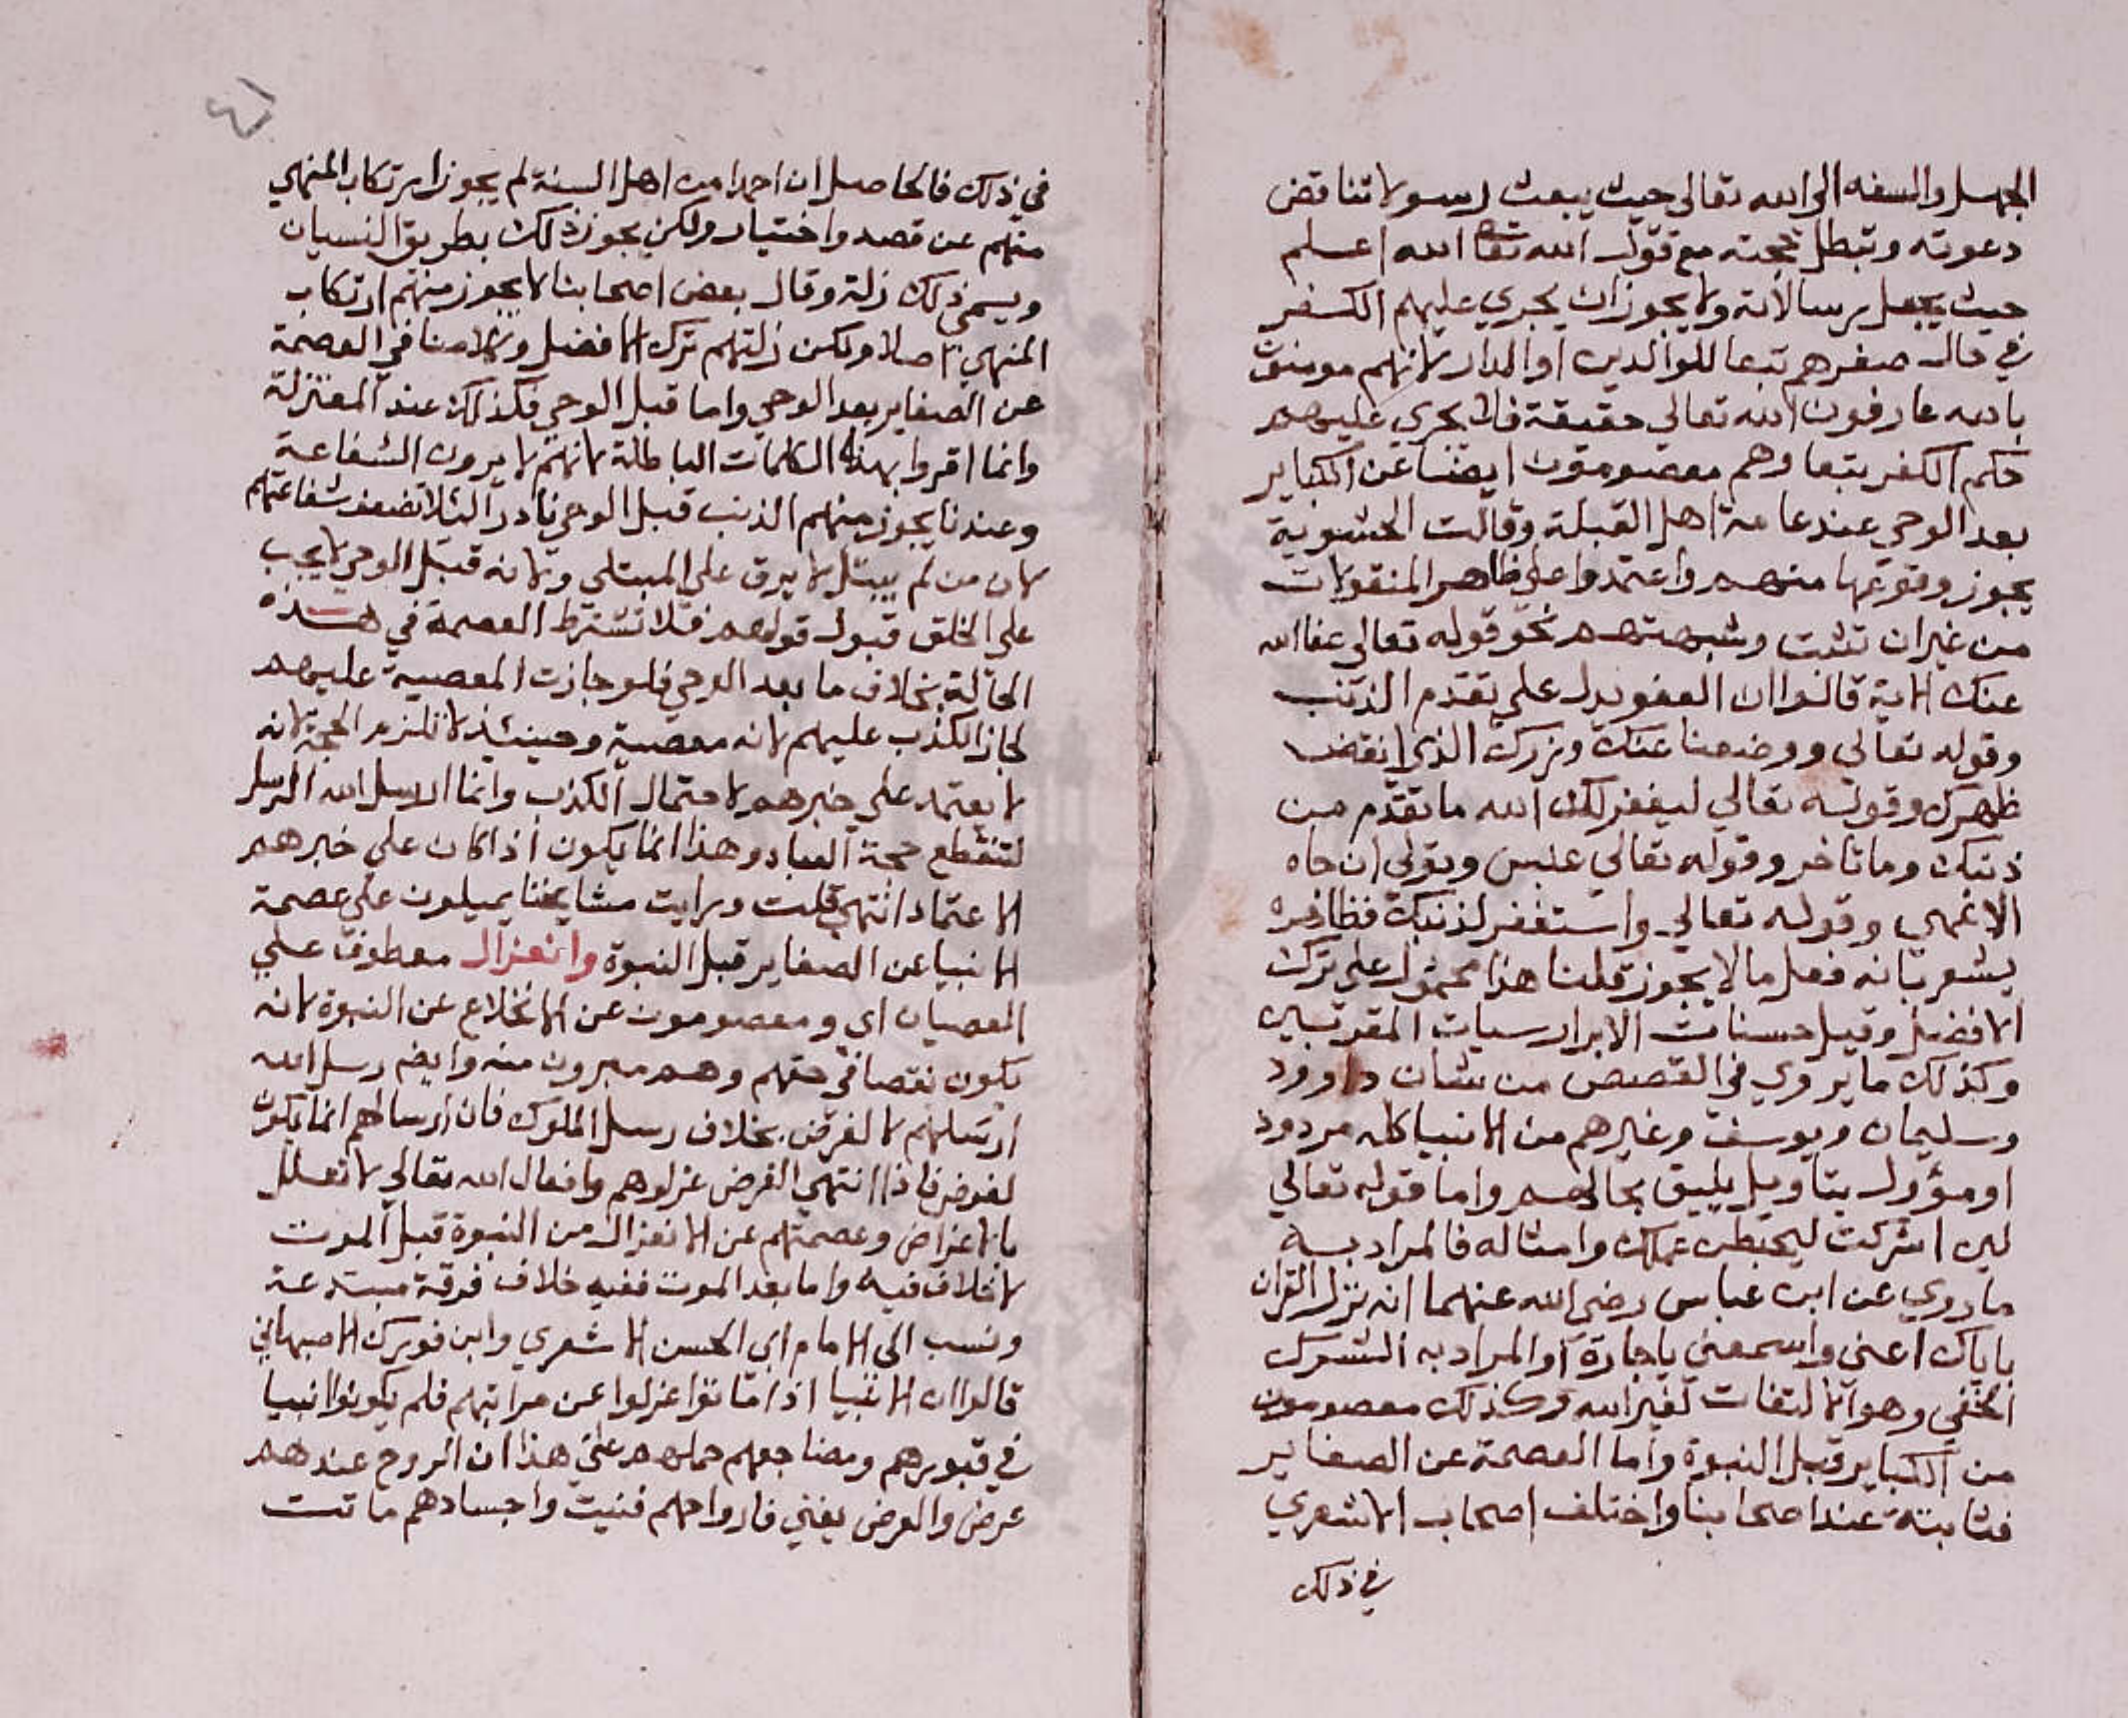 الجهل والسفه الى الله تعالى حيث يبعث رسولا تناقض
دعوته وتبطل حجته مع قول الله تعا الله اعلم
حيث يجعل رسالاته ولا يجوز ان يجري عليهم الكفر
في حال صغرهم تبعا للوالدين او الدار لانهم مومنون
بالله عارفون الله تعالى حقيقة فلا يجري عليهم
حكم الكفر بتعا وهم معصومون ايضا عن الكباير
بعد الوحي عند عامة اهل القبلة وقالت الحشوية
يجوز وقوعها منهم واعتمدوا على ظاهر المنقولات
من غير ان تثبت وشبهتهم نحو قوله تعالى عفا الله
عنك الاية قالوا ان العفو يدل على تقدم الذنب
وقوله تعالى ووضعنا عنك وزرك الذي انقض
ظهرك وقوله تعالي ليغفر لك الله ما تقدم من
ذنبك وما تاخر وقوله تعالي عبس وتولى ان جاه
الاعمى وقوله تعالي واستغفر لذنبك فظاهره
يشعر بانه فعل ما لا يجوز قلنا هذا محمول على ترك
الافضل وقيل حسنات الابرار سيات المقربين
وكذلك ما يروي في القصص من شان داوود
وسليمان ويوسف وغيرهم من الانبيا كله مردود
او مؤول بتاويل يليق بحالهم واما قوله تعالي
لين اشركت ليحبطن عملك وامثاله فالمراد به
ما روي عن ابن عباس رضى الله عنهما انه نزل القران
باياك اعنى واسمعي يا جارة او المراد به الشرك
الخفي وهو الالتفات لغير الله وكذلك معصومون
من الكباير قبل النبوة واما العصمة عن الصغاير
فثابتة عند اصحابنا واختلف اصحاب الاشعري
في ذلك
في ذلك فالحاصل ان احدا من اهل السنة لم يجوز ارتكاب المنهي
منهم عن قصد واختيار ولكن يجوز ذلك بطريق النسيان
ويسمى ذلك زلة وقال بعض اصحابنا لا يجوز منهم ارتكاب
المنهي اصلا ولكن زلتهم ترك الافضل وكلامنا في العصمة
عن الصغاير بعد الوحي واما قبل الوحي فكذلك عند المعتزلة
وانما اقروا بهذه الكلمات الباطلة لانهم لا يرون الشفاعة
وعندنا يجوز منهم الذنب قبل الوحي نادرا ليلا تضعف شفاعتهم
لان من لم يبتل لا يرق على المبتلى ولانه قبل الوحي لا يجب
على الخلق قبول قولهم فلا تشترط العصمة في هذه
الحالة بخلاف ما بعد الوحي فلو جازت المعصية عليهم
لجاز الكذب عليهم لانه معصية وحينئذ لا تلزم الحجة لانه
لا يعتمد على خبرهم لاحتمال الكذب وانما ارسل الله الرسل
لتنقطع حجة العباد وهذا انما يكون اذا كان علي خبرهم
الاعتماد انتهى قلت ورايت مشايخنا يميلون على عصمة
الانبيا عن الصغاير قبل النبوة وانعزال معطوف علي
العصيان اي ومعصومون عن الانخلاع عن النبوة لانه
يكون نقصا في حقهم وهم مبرون منه وايضا رسل الله
ارسلهم لا لغرض بخلاف رسل الملوك فان ارسالهم انما يكون
لغرض فاذا انتهي الغرض عزلوهم وافعال الله تعالي لا تعلل
بالاغراض وعصمتهم عن الانعزال من النبوة قبل الموت
لا خلاف فيه واما بعد الموت ففيه خلاف فرقة مبتدعة
ونسب الى الامام ابي الحسن الاشعري وابن فورك الاصبهاني
قالوا ان الانبيا اذا ماتوا عزلوا عن مراتبهم فلم يكونوا انبيا
في قبورهم ومضاجعهم حملهم على هذا ان الروح عندهم
عرض والعرض يفني فارواحهم فنيت واجسادهم ماتت